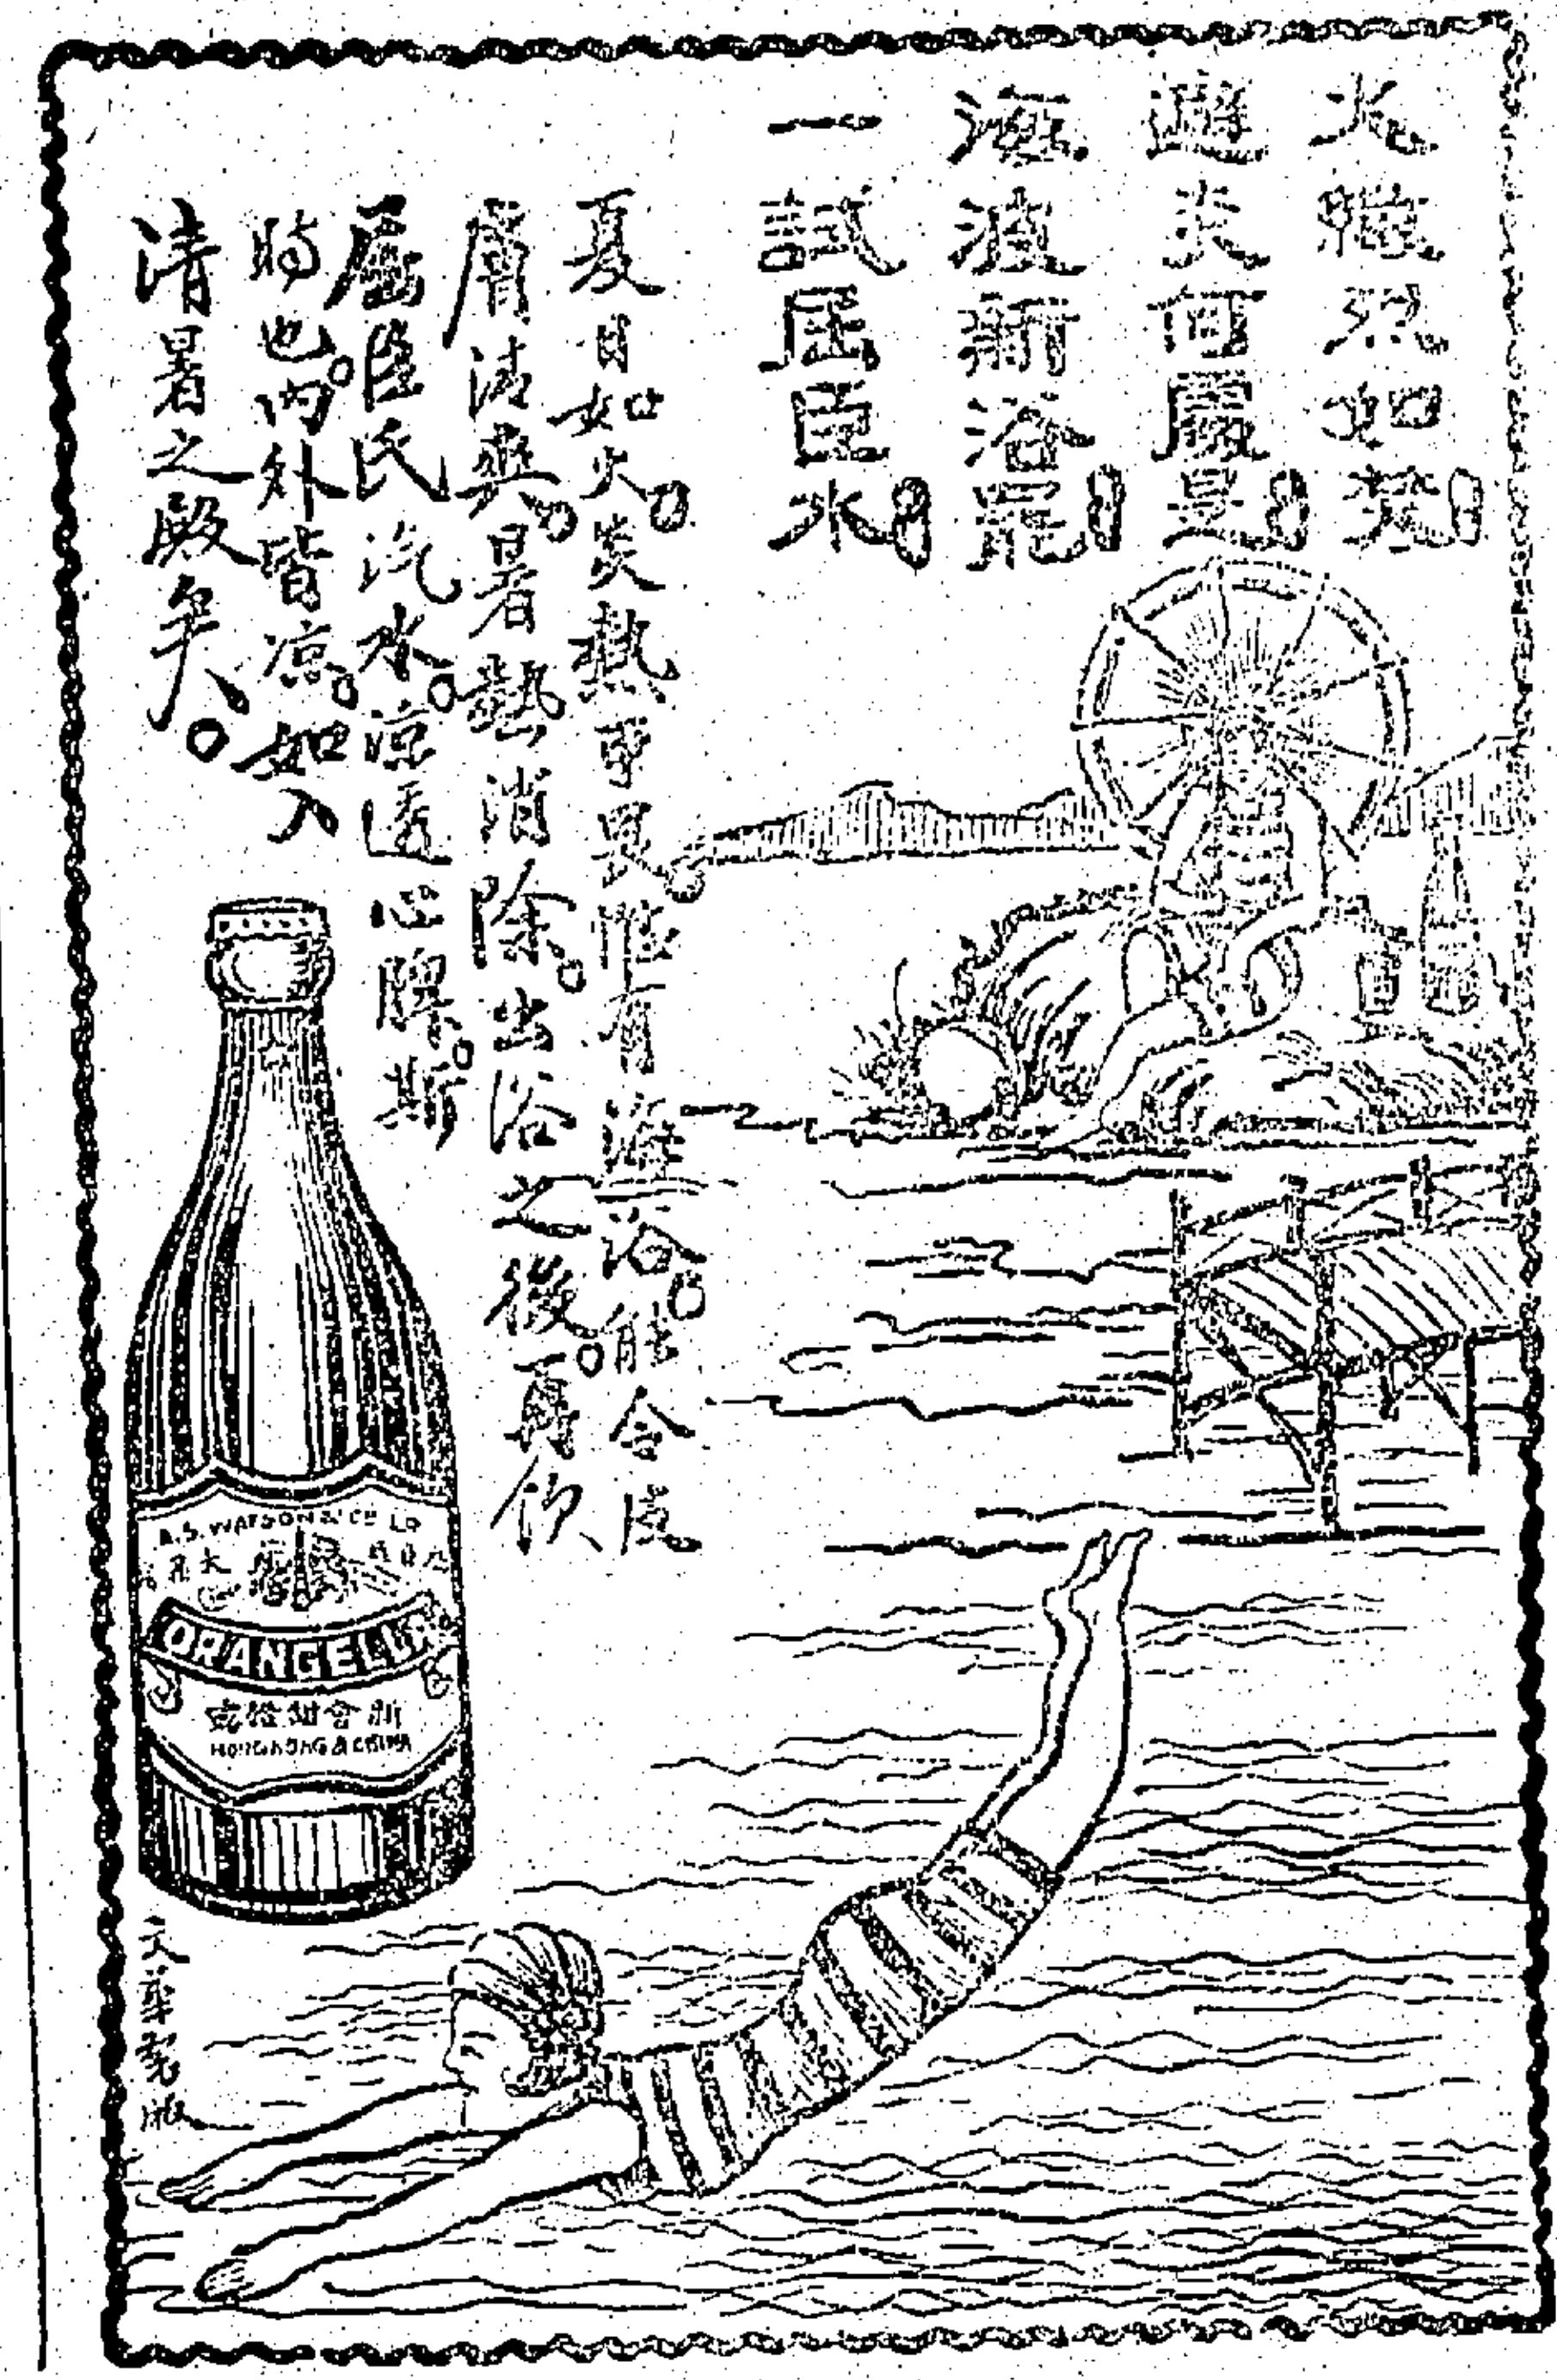 火繖烈如焚。
避炎何處是。
海波新浴罷。
一試屈臣水。
夏日如火。炎熱可畏。惟有海浴。能令皮
膚清爽。暑熱消除。出浴之後。再飲
屈臣氏汽水。凉透心脾。斯
時也。內外皆凉。如入
清暑之殿矣。
A.S. WATSON & CO LD
ORANGELLA
新會甜橙露
HONGKONG & CHINA